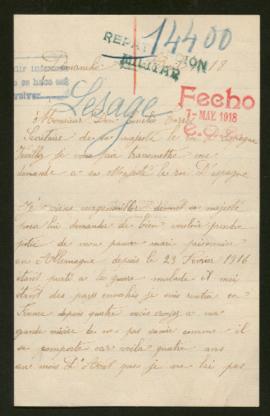 14400
REPATRIACION
MILITAR
Dimanche
18
Lesage
Fecho
1-MAY. 1918
à Monsieur Don
Secrétaire de sa majesté le roi d'Espagne
Veuillez je vous prie transmettre ma
demande a sa Majesté le roi d'espagne
Je viens
sa majesté
pour lui demander de bien vouloir prendre
pitié de mon pauvre mari prisonnier
en Allemagne depuis le 23 Février 1916
étant parti a la guerre malade et moi
étant des pays envahis je suis rentrée en
France depuis quatre mois croyez a ma
grande misère de ne pas savoir comme il
se comporte car voila quatre ans
au mois d'Aout que je ne l'ai pas